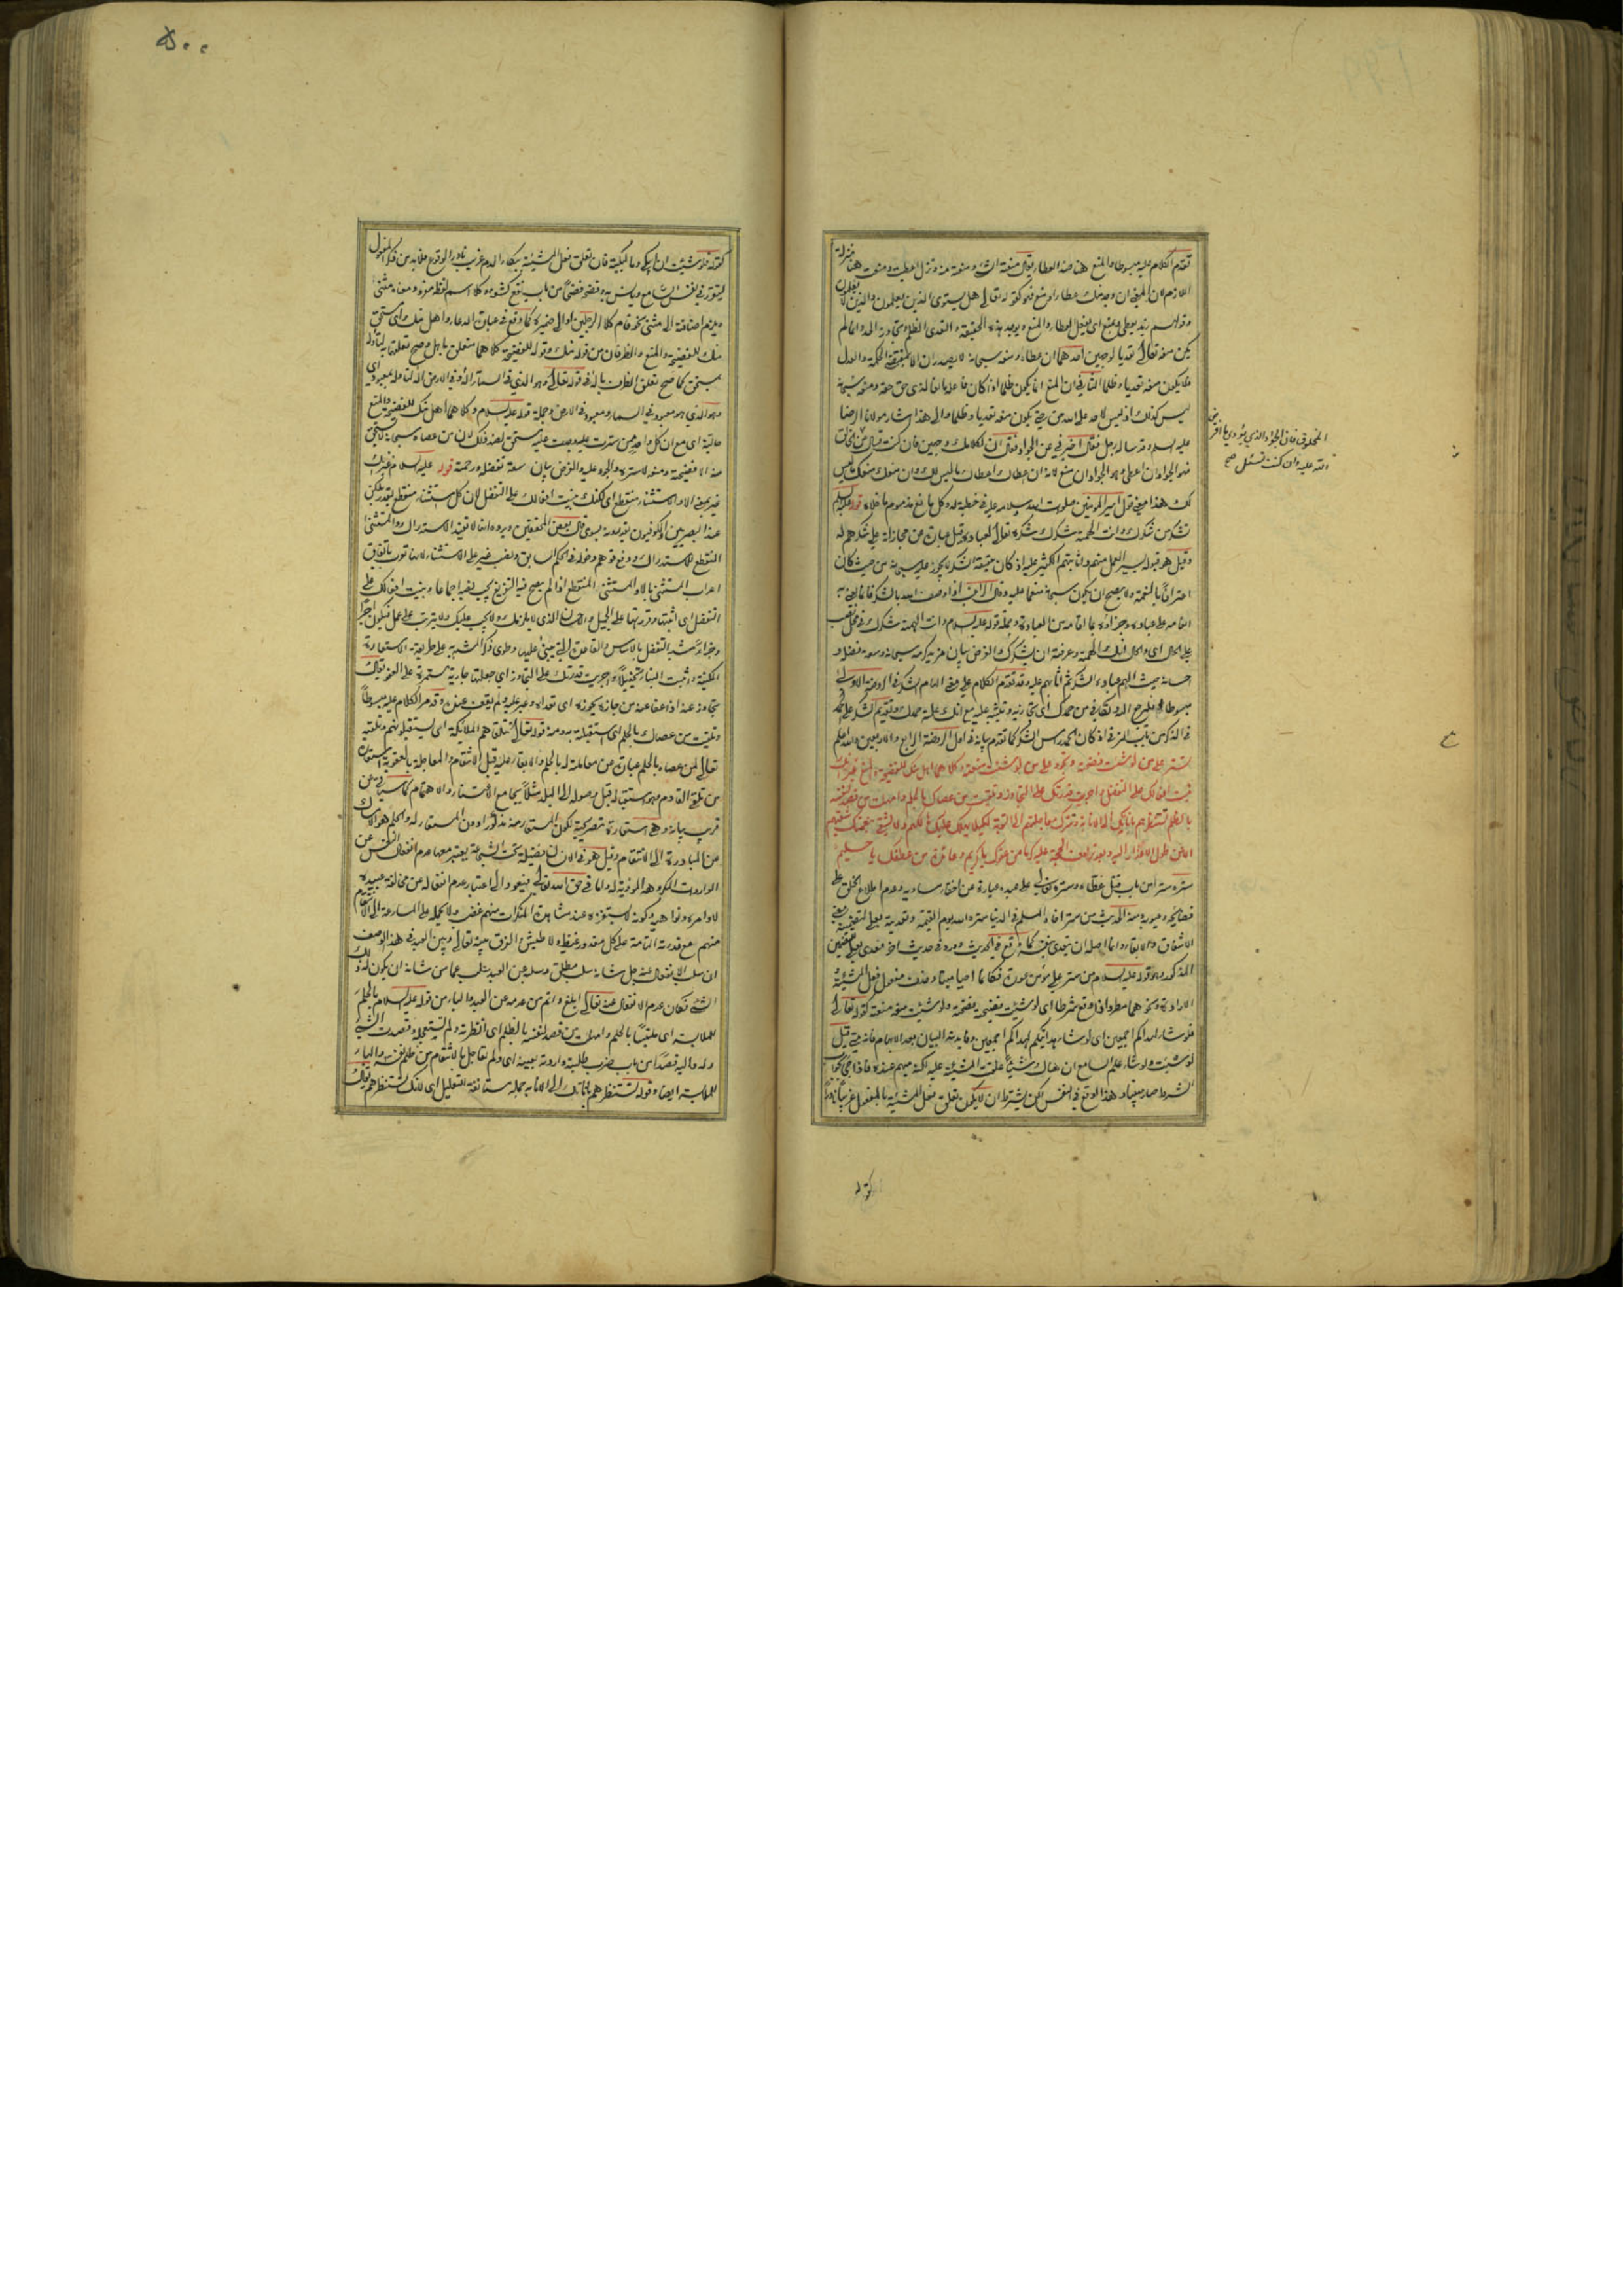 تقدم الكلام عليه مبسوطا والمنع هنا ضد العطاء يقال منعته الشيء ومنعته منه ونزل اعطيت ومنعت هنا منزلة
اللازم لان المعنى ان وجد منك عطاء او منع فهو كقوله تعالى هل يستوى الذين يعلمون والذين لا يعلمون
وقولهم زيد يعطى ويمنع اى يفعل العطاء والمنع ويوجد هذه الحقيقة والتعدى الظلم وتجاوز الحد وانما لم
يكن منعه تعالى تعديا لوجهين احدهما ان عطاءه ومنعه سبحانه لا يصدران الا بمقتضى الحكمة والعدل
فلا يكون منعه تعديا وظلما الثانى ان المنع انما يكون ظلما اذا كان فاعله مانعا لذى حق حقه ومنعه سبحانه
ليس كذلك اذ ليس لاحد على الله من حق يكون منعه تعديا وظلما والى هذا اشار مولانا الرضا
عليه السلام وقد ساله رجل فقال اخبرنى عن الجواد فقال ان لكلامك وجهين فان كنت تسال عن الخالق
فهو الجواد ان اعطى وهو الجواد ان منع لانه ان اعطاك اعطاك ما ليس لك وان منعك منعك ما ليس
لك هذا معنى قول امير المؤمنين صلوات الله وسلامه عليه فى خطبة له وكل مانع مذموم ما خلاه قوله عليه السلام
تشكر من شكرك وانت الهمته شكرك شكره تعالى لعباده قيل عبارة عن مجازاته على شكرهم له
وقيل هو قبوله ليسير العمل منهم واثابتهم الكثير عليه اذ كان حقيقة الشكر لا يجوز عليه سبحانه من حيث كان
اعترافا بالنعمة ولا يصح ان يكون سبحانه منعما عليه وقال الراغب اذا وصف الله بالشكر فانما يعنى به
انعامه على عباده وجزاؤه بما اقاموه من العبادة وجملة قوله عليه السلام وانت الهمته شكرك فى محل نصب
على الحال اى والحال انك الهمته وعرفته ان يشكرك والغرض بيان مزيد كرمه سبحانه وسعة فضله و
احسانه حيث الهم عباده الشكر ثم اثابهم عليه وقد تقدم الكلام على معنى الهام الشكر فى الروضة الاولى
مبسوطا فليرجع اليه وتكافى من حمدك اى تجازيه وتثيبه عليه مع انك علمته حمدك وتقديم الشكر على الحمد
فى الذكر من باب الترقى اذ كان الحمد راس الشكر كما تقدم بيانه فى اول الروضة الرابعة والاربعين والله اعلم
تستر على من لو شئت فضحته وتجود على من لو شئت منعته وكلاهما اهل منك للفضيحة والمنع غير انك
بنيت افعالك على التفضل واجريت قدرتك على التجاوز وتلقيت من عصاك بالحلم وامهلت من قصد لنفسه
بالظلم تستنظرهم باناتك الى الانابة وتترك معاجلتهم الى التوبة لكيلا يهلك عليك هالكهم ولا يشقى بنعمتك شقيهم
الا عن طول الاعذار اليه وبعد ترادف الحجة عليه كرما من عفوك يا كريم وعائدة من عطفك يا حليم
ستره سترا من باب قتل غطاه وستره تعالى على عبده عبارة عن اخفاء مساويه وعدم اطلاع الخلق على
فضائحه وعيوبه ومنه الحديث من ستر اخاه المسلم فى الدنيا ستره الله يوم القيمة وتعديته بعلى لتضمينه معنى
الاشفاق والابقاء وانما اصله ان يتعدى بنفسه كما وقع فى الحديث ووروده فى حديث اخر متعديا بعلى للتضمين
المذكور وهو قوله عليه السلام من ستر على مؤمن عورة فكانما احيا ميتا وحذف مفعول فعل المشيئة
الارادة ونحوهما مطرد اذا وقع شرطا اى لو شئت فضيحته فضحته ولو شئت منعه منعته كقوله تعالى
فلو شاء لهداكم اجمعين اى لو شاء هدايتكم لهداكم اجمعين وفائدته البيان بعد الابهام فانه متى قيل
لو شئت ولو شاء علم السامع ان هناك شيئا علقت المشيئة عليه لكنه مبهم عنده فاذا جئ بجواب
الشرط صار مبينا وهذا اوقع فى النفس لكن يشترط ان لا يكون تعلق فعل المشيئة بالمفعول غريبا نادرا
المخلوق فان الجواد الذى يؤدى ما افترض
الله عليه وان كنت تسئل صح
كقوله
كقوله فلو شئت ان ابكى دما لبكيته فان تعلق فعل المشيئة ببكاء الدم غريب نادر الوقوع فلا بد من ذكر المفعول
ليتقرر فى نفس السامع ويانس به وفضحه فضحا من باب نفع كشفه وكلا اسم لفظه مفرد ومعناه مثنى
ويلزم اضافته الى مثنى نحو قام كلا الرجلين او الى ضميره كما وقع فى عبارة الدعاء واهل منك اى مستحق
منك للفضيحة والمنع والظرفان من قوله منك وقوله للفضيحة كلاهما متعلق باهل وصح تعلقهما به لتأوله
بمستحق كما صح تعلق الظرف باله فى قوله تعالى وهو الذى فى السماء اله وفى الارض اله لتأوله بمعبود اى
وهو الذى هو معبود فى السماء ومعبود فى الارض وجملة قوله عليه السلام وكلاهما اهل منك للفضيحة والمنع
حالية اى مع ان كل واحد ممن سترت عليه وجدت عليه مستحق لضد ذلك لان من عصاه سبحانه لا يستحق
منه الا فضيحته ومنعه لا ستره والجود عليه والغرض بيان سعة تفضله ورحمته قوله عليه السلام غير انك
غير بمعنى الا والاستثناء منقطع اى لكنك بنيت افعالك على التفضل لان كل استثناء منقطع يقدر بلكن
عند البصريين والكوفيون يقدرونه بسوى قال بعض المحققين ويرده انها لا تفيد الاستدراك والمستثنى
المنقطع للاستدراك ودفع توهم دخوله فى الحكم السابق ونصب غير على الاستثناء لانها تكون باتفاق
اعراب المستثنى بالا والمستثنى المنقطع اذا لم يصح فيه التفريغ يجب نصبه اجماعا وبنيت افعالك على
التفضل اى اثبتها وقررتها على الجميل والاحسان الذى لا يلزمك ولا يجب عليك ولا يترتب على عمل فيكون اجرا
وجزاء شبه التفضل بالاساس والقاعدة التى يبنى عليها وطوى ذكر المشبه به على طريقة الاستعارة
المكنية واثبت البناء تخييلا واجريت قدرتك على التجاوز اى جعلتها جارية مستمرة على العفو يقال
تجاوز عنه اذا عفا عنه من جازه يجوزه اى تعداه وعبر عليه ولم يقف عنده وقد مر الكلام عليه مبسوطا
وتلقيت من عصاك بالحلم اى استقبلته به ومنه قوله تعالى وتتلقاهم الملائكة اى يستقبلونهم وتلقيه
تعالى لمن عصاه بالحلم عبارة عن معاملته له بالحلم والابقاء عليه قبل الانتقام والمعاجلة بالعقوبة استعارة
من تلقى القادم وهو استقباله قبل وصوله الى البلد مثلا بجامع الاعتناء والاهتمام كما سيأتى عن
قريب بيانه وهى استعارة تصريحية لكون المستعار منه مذكورا دون المستعار له والحلم هو الامساك
عن المبادرة الى الانتقام وقيل هو فى الانسان فضيلة تحت الشجاعة يعتبر معها عدم انفعال النفس عن
الواردات المكروهة الموذية له واما فى حق الله تعالى فيعود الى اعتبار عدم انفعاله عن مخالفة عبيده
لاوامره ونواهيه وكونه لا يستفزه عند مشاهدة المنكرات منهم غضب ولا يحمله على المسارعة الى الانتقام
منهم مع قدرته التامة على كل مقدور غيظ ولا طيش والفرق بينه تعالى وبين العبد فى هذا الوصف
ان سلب الانفعال عنه جل شانه سلب مطلق وسلبه عن العبد سلب عما من شانه ان يكون له ذلك
الشئ فكان عدم الانفعال عنه تعالى ابلغ واتم من عدمه عن العبد والباء من قوله عليه السلام بالحلم
للملابسة اى ملتبسا بالحلم وامهلت من قصد لنفسه بالظلم اى انظرته ولم تستعجله وقصدت الشئ
وله واليه قصدا من باب ضرب طلبته واردته بعينه اى ولم تعاجل بالانتقام من ظلم نفسه والباء
للملابسة ايضا وقوله تستنظرهم باناتك الى الانابة جملة مستانفة للتعليل اى لانك تستنظرهم يقال